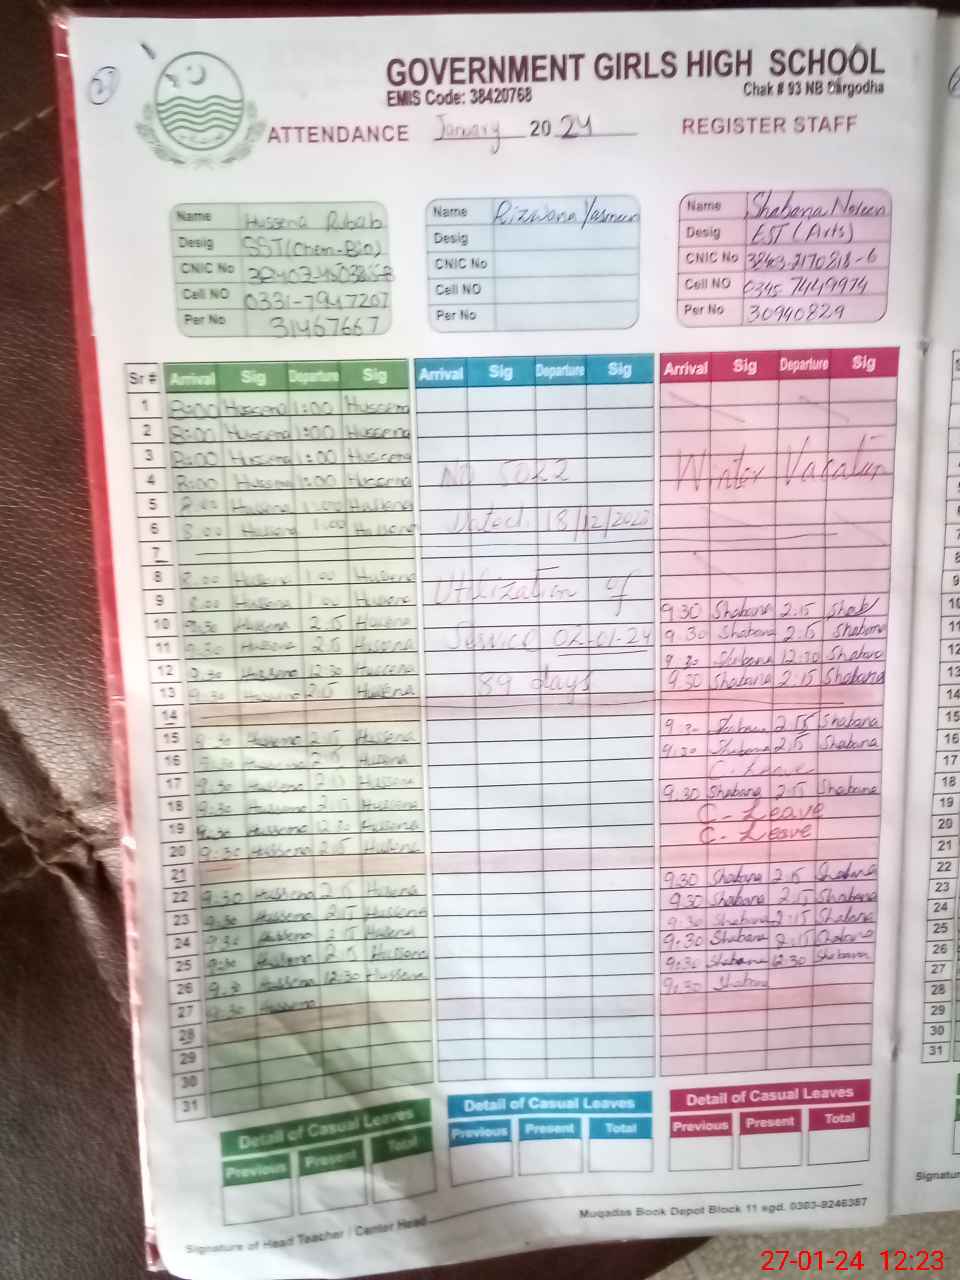 27
GOVERNMENT GIRLS HIGH SCHOOL
EMIS Code: 38420768
Chak # 93 NB Sargodha
ATTENDANCE January 20 24 REGISTER STAFF
Name Hussena Rubab
Desig SST(Chem-Bio)
CNIC No
Cell NO 0331-7947207
Per No 31467667
Name Rizwana Yasmeen
Desig
CNIC No
Cell NO
Per No
Name Shabana Noreen
Desig EST (Arts)
CNIC No 38403-2170818-6
Cell NO 0345-7449974
Per No 30940829
Sr # Arrival Sig Departure Sig Arrival Sig Departure Sig Arrival Sig Departure Sig
1 8:00 Hussena 1:00 Hussena
2 8:00 Hussena 1:00 Hussena
3 8:00 Hussena 1:00 Hussena
4 8:00 Hussena 1:00 Hussena NO 5022 Winter Vacation
5 8:00 Hussena 1:00 Hussena
6 8:00 Hussena 1:00 Hussena Dated 18/12/2023
7
8 8:00 Hussena 1:00 Hussena Utilization of
9 8:00 Hussena 1:00 Hussena
10 9:30 Hussena 2:15 Hussena 9:30 Shabana 2:15 Shab
11 9:30 Hussena 2:15 Hussena Service 02-01-24 9:30 Shabana 2:15 Shabana
12 9:30 Hussena 12:30 Hussena 9:30 Shabana 12:30 Shabana
13 9:30 Hussena 2:15 Hussena 89 days 9:30 Shabana 2:15 Shabana
14
15 9:30 Hussena 2:15 Hussena 9:30 Shabana 2:15 Shabana
16 9:30 Hussena 2:15 Hussena 9:30 Shabana 2:15 Shabana
17 9:30 Hussena 2:15 Hussena C-Leave
18 9:30 Hussena 2:15 Hussena 9:30 Shabana 2:15 Shabana
19 9:30 Hussena 12:30 Hussena C-Leave
20 9:30 Hussena 2:15 Hussena C-Leave
21
22 9:30 Hussena 2:15 Hussena 9:30 Shabana 2:15 Shabana
23 9:30 Hussena 2:15 Hussena 9:30 Shabana 2:15 Shabana
24 9:30 Hussena 2:15 Hussena 9:30 Shabana 2:15 Shabana
25 9:30 Hussena 2:15 Hussena 9:30 Shabana 2:15 Shabana
26 9:30 Hussena 12:30 Hussena 9:30 Shabana 12:30 Shabana
27 9:30 Hussena 9:30 Shabana
28
29
30
31
Detail of Casual Leaves Detail of Casual Leaves Detail of Casual Leaves
Previous Present Total Previous Present Total Previous Present Total
Signature of Head Teacher / Center Head
Muqadas Book Depot Block 11 sgd. 0303-9246387
10
11
12
13
14
15
16
17
18
19
20
21
22
23
24
25
26
27
28
29
30
31
27-01-24 12:23